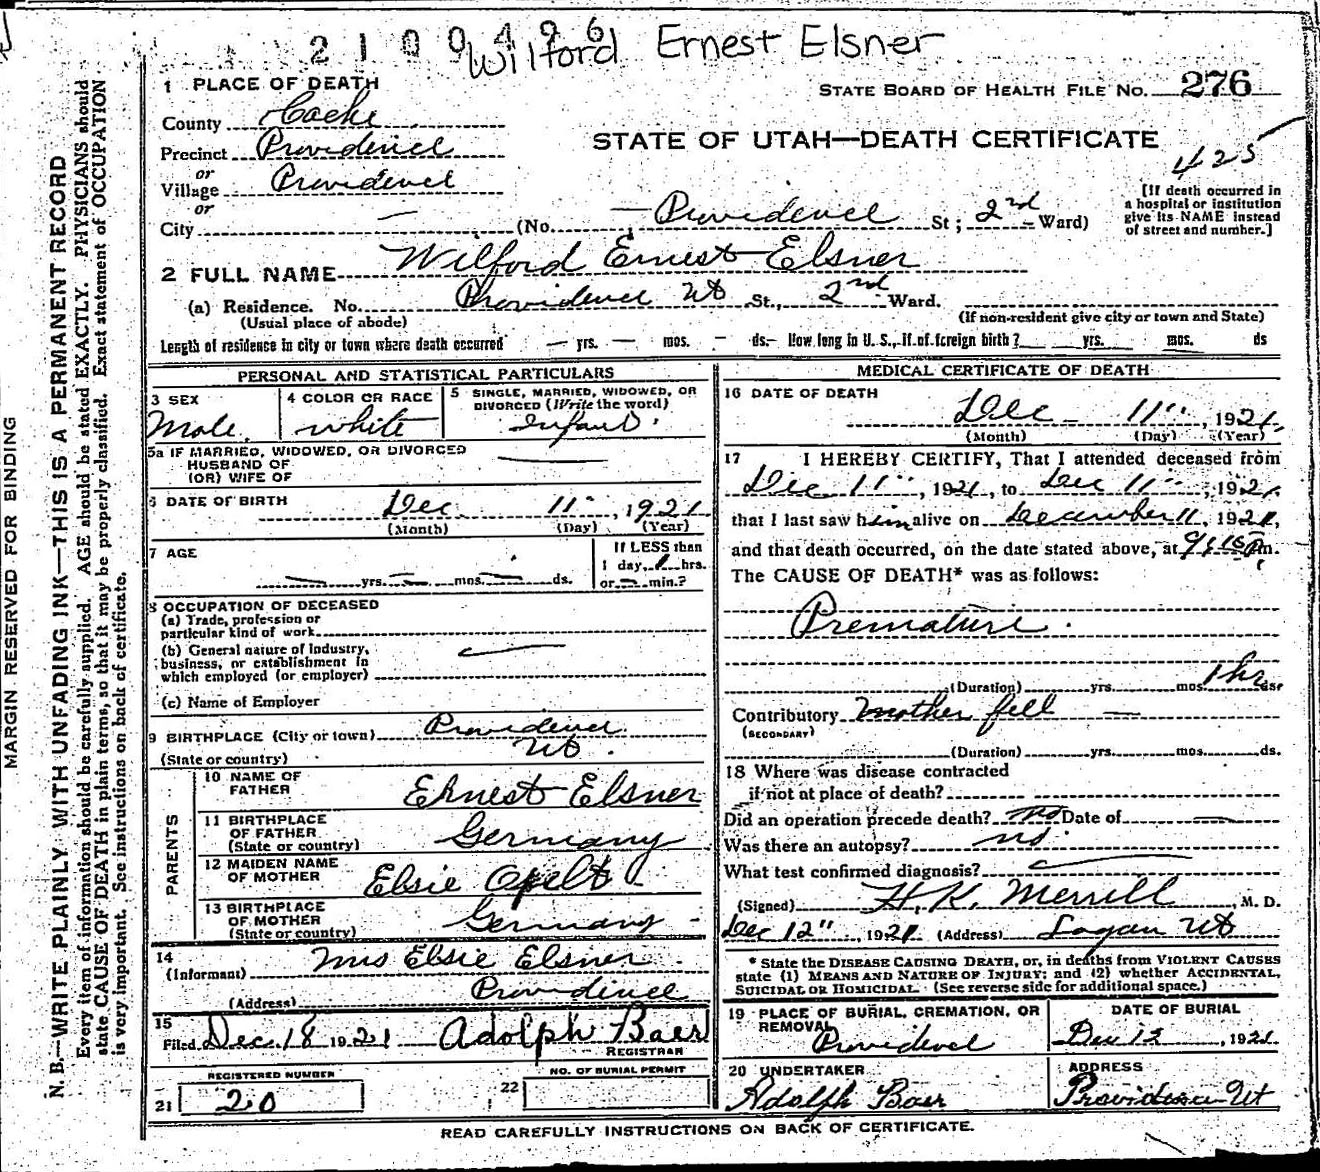 2100496
Wilford Ernest Elsner
1 PLACE OF DEATH
STATE BOARD OF HEALTH FILE NO. 276
County Cache
STATE OF UTAH—DEATH CERTIFICATE
425
Precinct Providence
or
Village Providence
or
City — (No. — Providence St; 2nd Ward)
[If death occurred in
a hospital or institution
give its NAME instead
of street and number.]
2 FULL NAME Wilford Ernest Elsner
(a) Residence. No. Providence Ut St., 2nd Ward.
(Usual place of abode)
(If non-resident give city or town and State)
Length of residence in city or town where death occurred — yrs. — mos. — ds.— How long in U. S., if of foreign birth? yrs. mos. ds
PERSONAL AND STATISTICAL PARTICULARS
3 SEX
Male.
4 COLOR OR RACE
white
5 SINGLE, MARRIED, WIDOWED, OR
DIVORCED (Write the word)
Infant.
5a IF MARRIED, WIDOWED, OR DIVORCED
HUSBAND OF
(OR) WIFE OF —
6 DATE OF BIRTH Dec 11", 1921
(Month) (Day) (Year)
7 AGE
— yrs. — mos. — ds.
If LESS than
1 day, 1 hrs.
or — min.?
8 OCCUPATION OF DECEASED
(a) Trade, profession or
particular kind of work
(b) General nature of Industry,
business, or establishment in
which employed (or employer)
(c) Name of Employer
9 BIRTHPLACE (City or town) Providence
(State or country) Ut.
PARENTS
10 NAME OF
FATHER Ehnest Elsner
11 BIRTHPLACE
OF FATHER
(State or country) Germany
12 MAIDEN NAME
OF MOTHER Elsie Opelt
13 BIRTHPLACE
OF MOTHER
(State or country) Germany -
14
(Informant) Mrs Elsie Elsner
(Address) Providence
15
Filed Dec. 18 1921 Adolph Baer
REGISTRAR
REGISTERED NUMBER
21 20
NO. OF BURIAL PERMIT
22
MEDICAL CERTIFICATE OF DEATH
16 DATE OF DEATH
Dec - 11", 1921.
(Month) (Day) (Year)
17 I HEREBY CERTIFY, That I attended deceased from
Dec 11", 1921, to Dec 11", 1921.
that I last saw him alive on December 11, 1921,
and that death occurred, on the date stated above, at 9:15 Pm.
The CAUSE OF DEATH* was as follows:
Premature.
(Duration) yrs. mos. 1 hr ds.
Contributory Mother fell —
(SECONDARY)
(Duration) yrs. mos. ds.
18 Where was disease contracted
if not at place of death?
Did an operation precede death? No Date of —
Was there an autopsy? no.
What test confirmed diagnosis?
(Signed) H. K. Merrill, M. D.
Dec 12", 1921 (Address) Logan Ut
* State the DISEASE CAUSING DEATH, or, in deaths from VIOLENT CAUSES
state (1) MEANS AND NATURE OF INJURY; and (2) whether ACCIDENTAL,
SUICIDAL OR HOMICIDAL. (See reverse side for additional space.)
19 PLACE OF BURIAL, CREMATION, OR
REMOVAL
Providence
DATE OF BURIAL
Dec 12, 1921
20 UNDERTAKER
Adolph Baer
ADDRESS
Providence Ut
READ CAREFULLY INSTRUCTIONS ON BACK OF CERTIFICATE.
MARGIN RESERVED FOR BINDING
N. B.—WRITE PLAINLY WITH UNFADING INK—THIS IS A PERMANENT RECORD
Every item of information should be carefully supplied. AGE should be stated EXACTLY. PHYSICIANS should
state CAUSE OF DEATH in plain terms, so that it may be properly classified. Exact statement of OCCUPATION
is very important. See instructions on back of certificate.